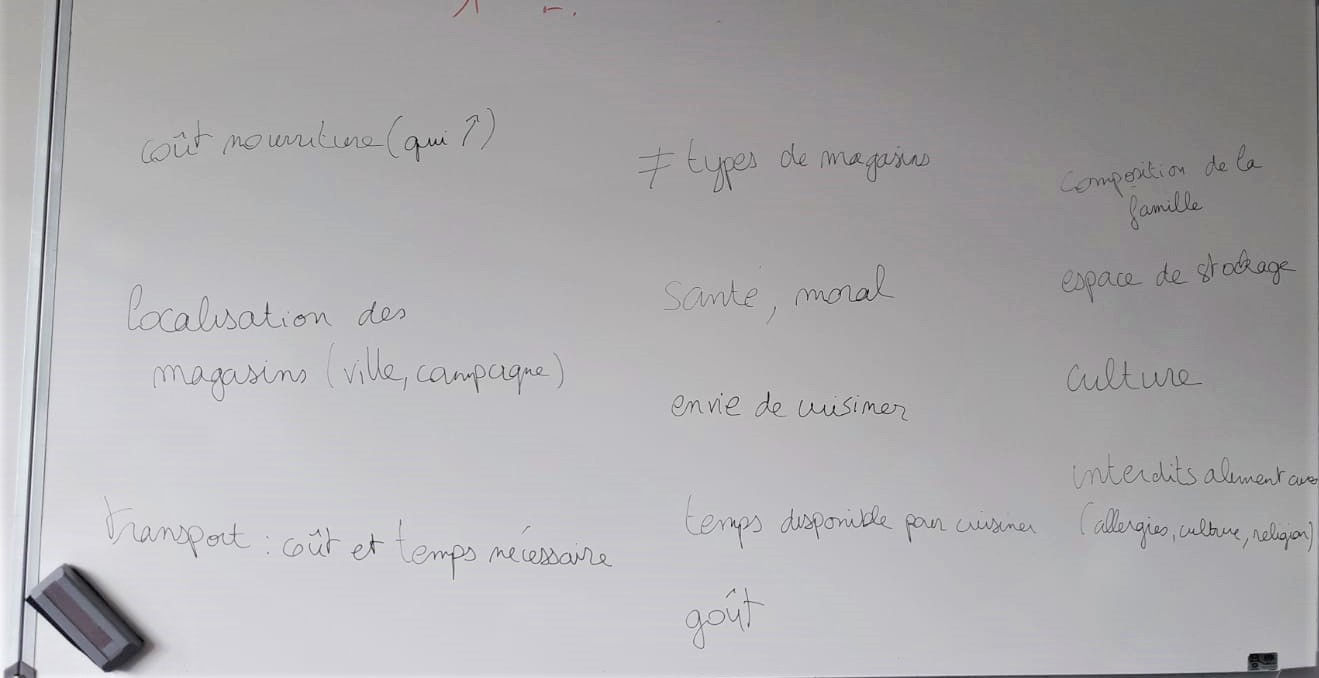 coût nourriture (qui ↑)
localisation des
magasins (ville, campagne)
transport : coût et temps nécessaire
≠ types de magasins
santé, moral
envie de cuisiner
temps disponible pour cuisiner
goût
composition de la
famille
espace de stockage
culture
interdits alimentaires
(allergies, culture, religion)